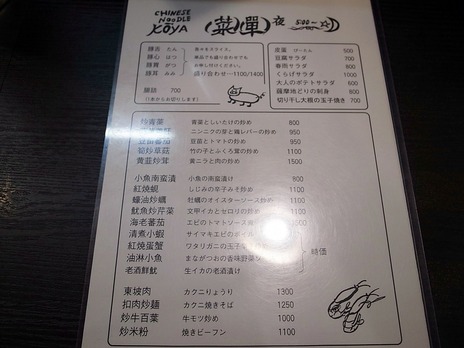 CHINESE
NOODLE
KŌYA
(菜單) 夜 5:00〜
豚舌 たん
豚心 はつ
豚胃 がつ
豚耳 みみ
盛り合わせ…1100/1400
腸詰 700
(1本からお切りします)
皮蛋 ぴーたん 500
豆腐サラダ 700
春雨サラダ 800
くらげサラダ 1000
大人のポテトサラダ 600
薩摩地どりの刺身 800
切り干し大根の玉子焼き 700
炒青菜 青菜としいたけの炒め 800
ニンニクの芽と鶏レバーの炒め 950
豆苗蕃茄 豆苗とトマトの炒め 950
筍炒草菇 竹の子とふくろ茸の炒め 1100
黄韮炒茸 黄ニラと肉の炒め 1500
小魚南蛮漬 小魚の南蛮漬け 800
紅焼蜆 しじみの辛子みそ炒め 1100
蠔油炒蠣 牡蠣のオイスターソース炒め 1100
魷魚炒芹菜 文甲イカとセロリの炒め 1100
海老蕃茄 エビのトマトソース
清煮小蝦 サイマキエビのボイル
紅焼蛋蟹 ワタリガニの玉子
油淋小魚 まながつおの香味野菜
老酒鮮魷 生イカの老酒漬け
時価
東坡肉 カクニりょうり 1300
扣肉炒麺 カクニ焼きそば 1250
炒牛百葉 牛モツ炒め 1000
炒米粉 焼きビーフン 1100